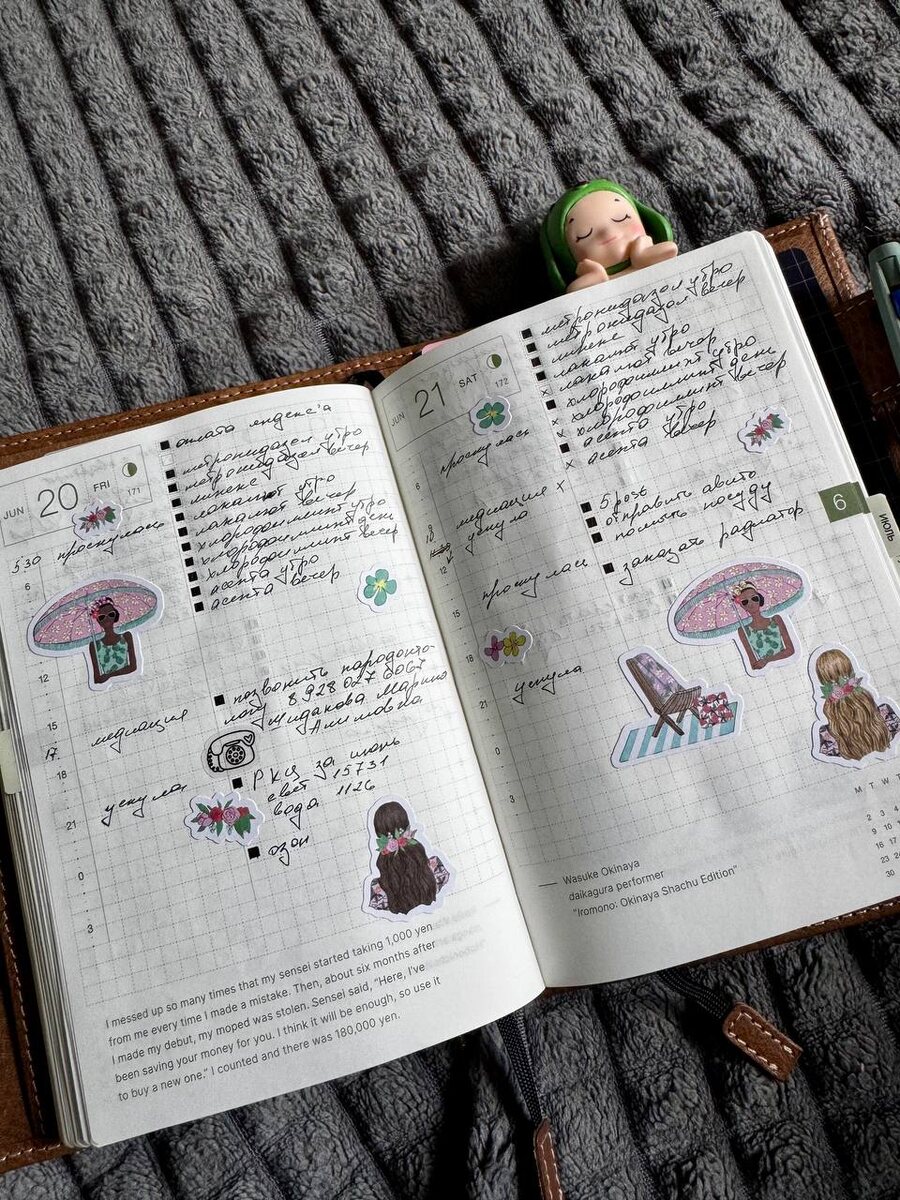 JUN 20 FRI
171
оплата яндекс'а
метронидазол утро
метронидазол вечер
линекс
лакалют утро
лакалют вечер
хлорофиллипт утро
хлорофиллипт день
хлорофиллипт вечер
асепта утро
асепта вечер
5:30 проснулась
6
12
позвонить пародонто-
логу 8 928 027 0067
Жидакова Марина
Алимовна
15
медиация
17
18
РКЦ за июнь
свет 15731
вода 1126
уснула
21
озон
0
3
I messed up so many times that my sensei started taking 1,000 yen
from me every time I made a mistake. Then, about six months after
I made my debut, my moped was stolen. Sensei said, "Here, I've
been saving your money for you. I think it will be enough, so use it
to buy a new one." I counted and there was 180,000 yen.
JUN 21 SAT
172
метронидазол утро
метронидазол вечер
линекс
лакалют утро
лакалют вечер
хлорофиллипт утро
хлорофиллипт день
хлорофиллипт вечер
асепта утро
асепта вечер
проснулась
6
медиация
уснула
5post
отправить авито
помыть посуду
заказать радиатор
12
проснулась
15
18
уснула
21
0
3
6
ИЮЛЬ
M T W T
2 3 4
9 10
16 17
23 24
30
Wasuke Okinaya
daikagura performer
"Iromono: Okinaya Shachu Edition"